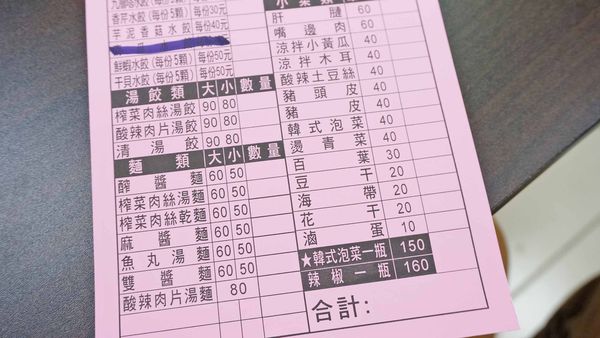 香芹水餃(每份5顆) 每份30元
芋泥香菇水餃 每份40元
鮮蝦水餃(每份5顆) 每份50元
干貝水餃(每份5顆) 每份50元
湯餃類 大 小 數量
榨菜肉絲湯餃 90 80
酸辣肉片湯餃 90 80
清湯餃 90 80
麵類 大 小 數量
醡醬麵 60 50
榨菜肉絲湯麵 60 50
榨菜肉絲乾麵 60 50
麻醬麵 60 50
魚丸湯麵 60 50
雙醬麵 60 50
酸辣肉片湯麵 80
肝腱 60
嘴邊肉 60
涼拌小黃瓜 40
涼拌木耳 40
酸辣土豆絲 40
豬頭皮 40
豬皮 40
韓式泡菜 40
燙青菜 40
百葉 30
豆干 20
海帶 20
花干 20
滷蛋 10
★韓式泡菜一瓶 150
辣椒一瓶 160
合計: